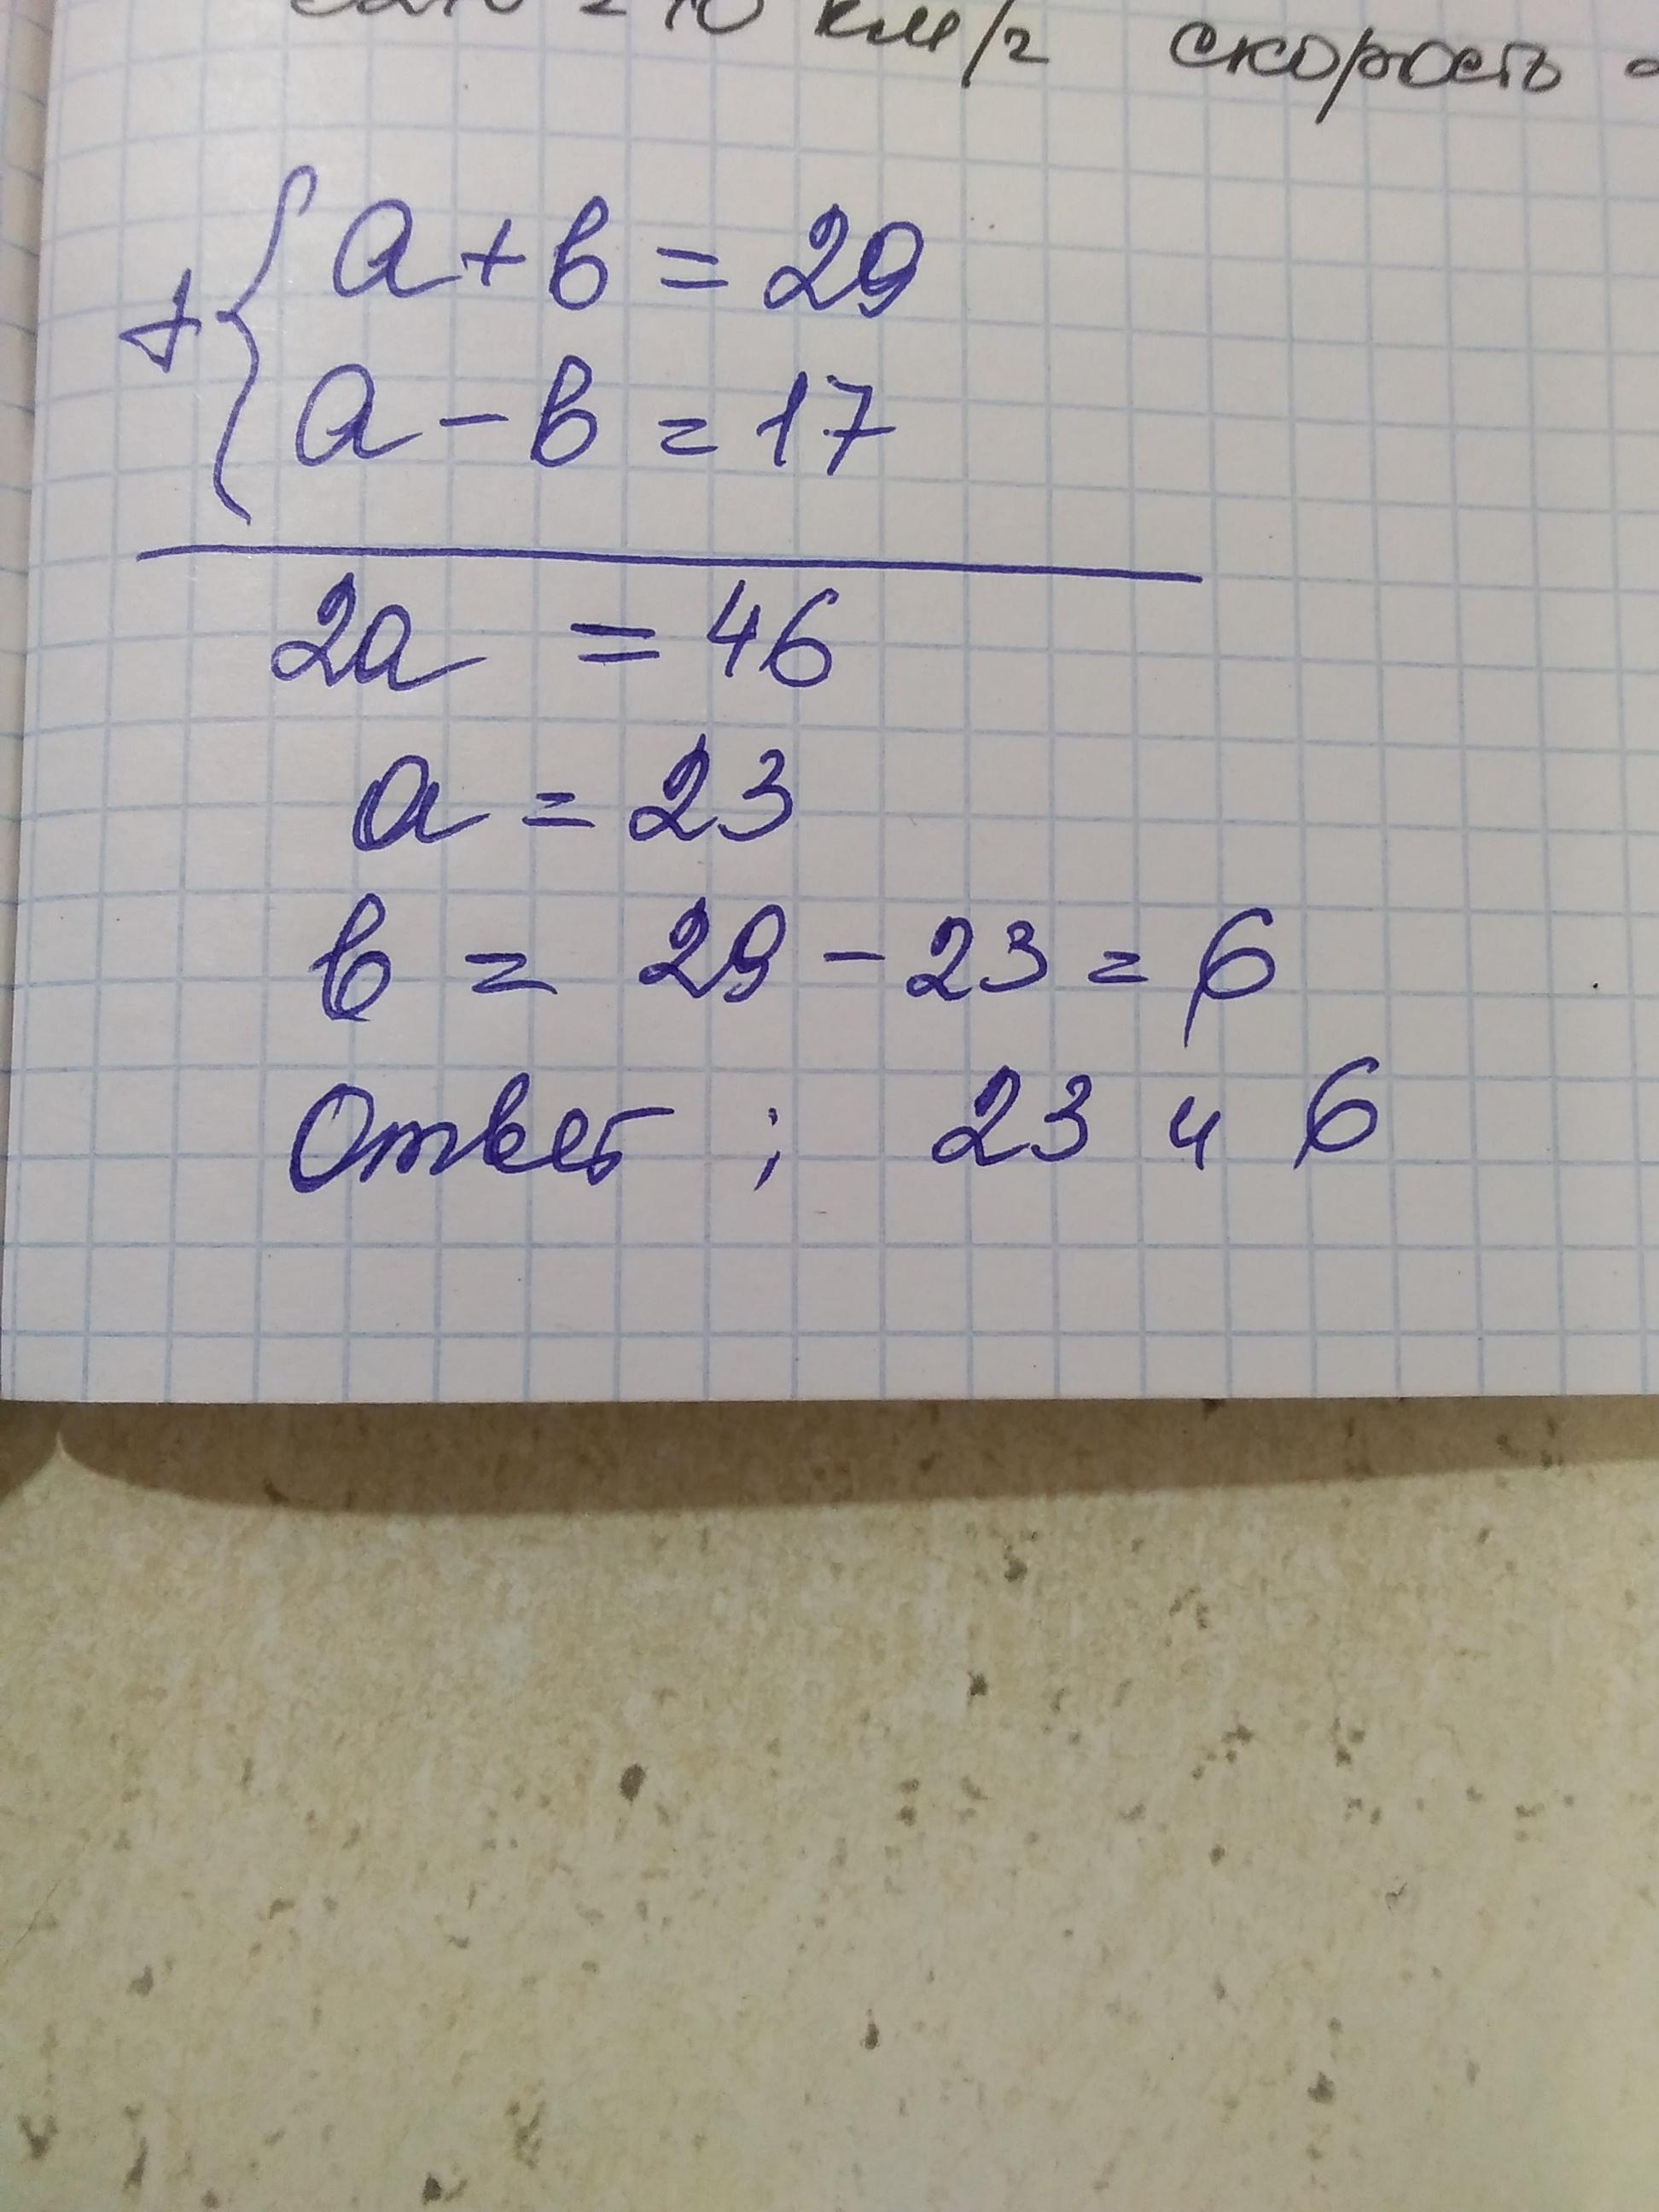 км/г скорость
+ { a + b = 29
a - b = 17
2a = 46
a = 23
b = 29 - 23 = 6
Ответ : 23 и 6